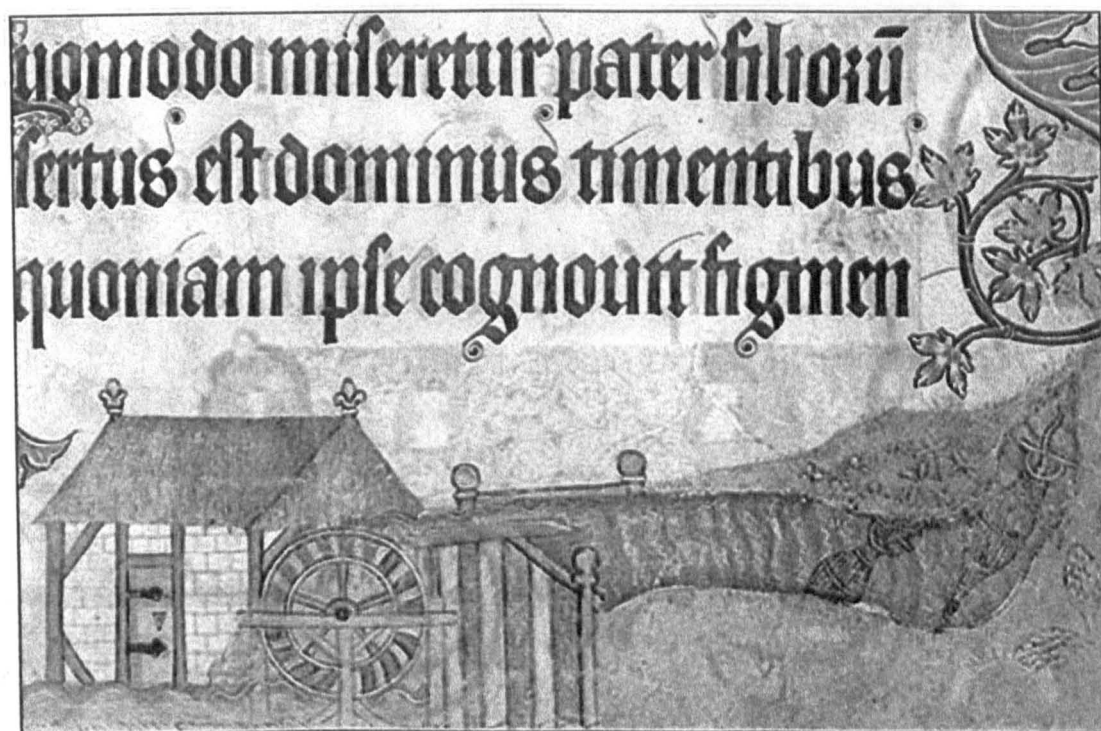 uomodo miſeretur pater filiorū
ſertus eſt dominus timentibus
quoniam ipſe cognouit figmen